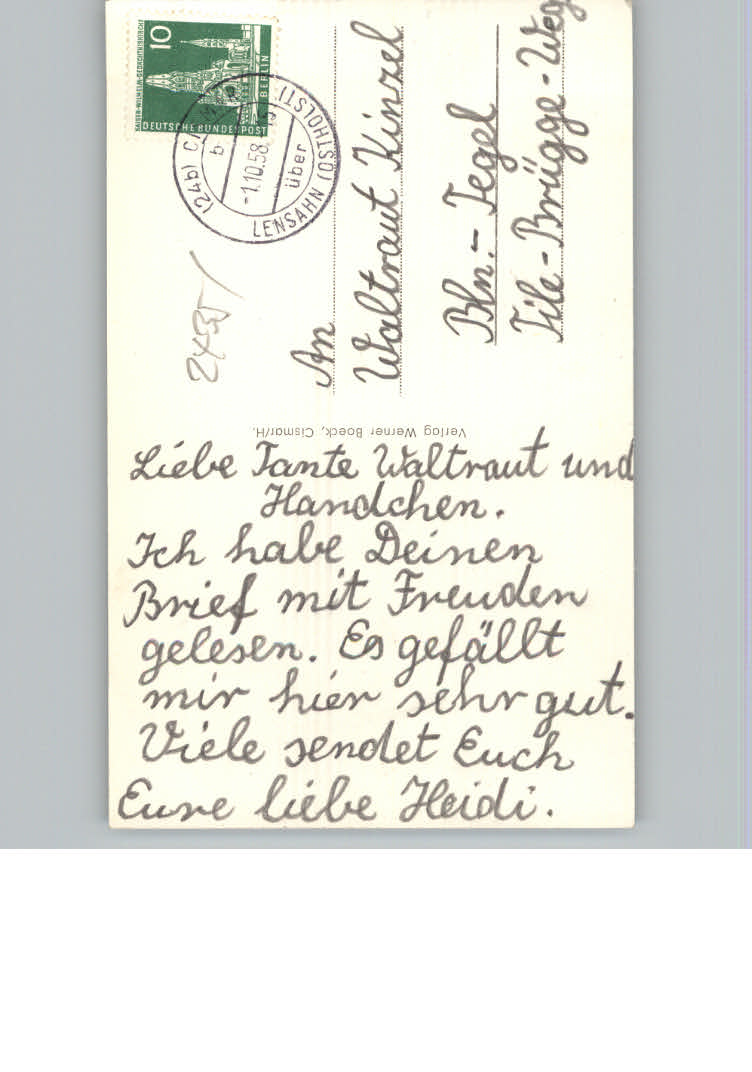 10
KAISER-WILHELM-GEDÄCHTNISKIRCHE
BERLIN
DEUTSCHE BUNDESPOST
(24b)
b
-1.10.58
über
LENSAHN (OSTHOLST)
2435
An
Waltraut Kinzel
Bln.-Tegel
Tile-Brügge-Weg
Verlag Werner Boeck, Cismar/H.
Liebe Tante Waltraut und
Handchen.
Ich habe Deinen
Brief mit Freuden
gelesen. Es gefällt
mir hier sehr gut.
Viele sendet Euch
Eure liebe Heidi.